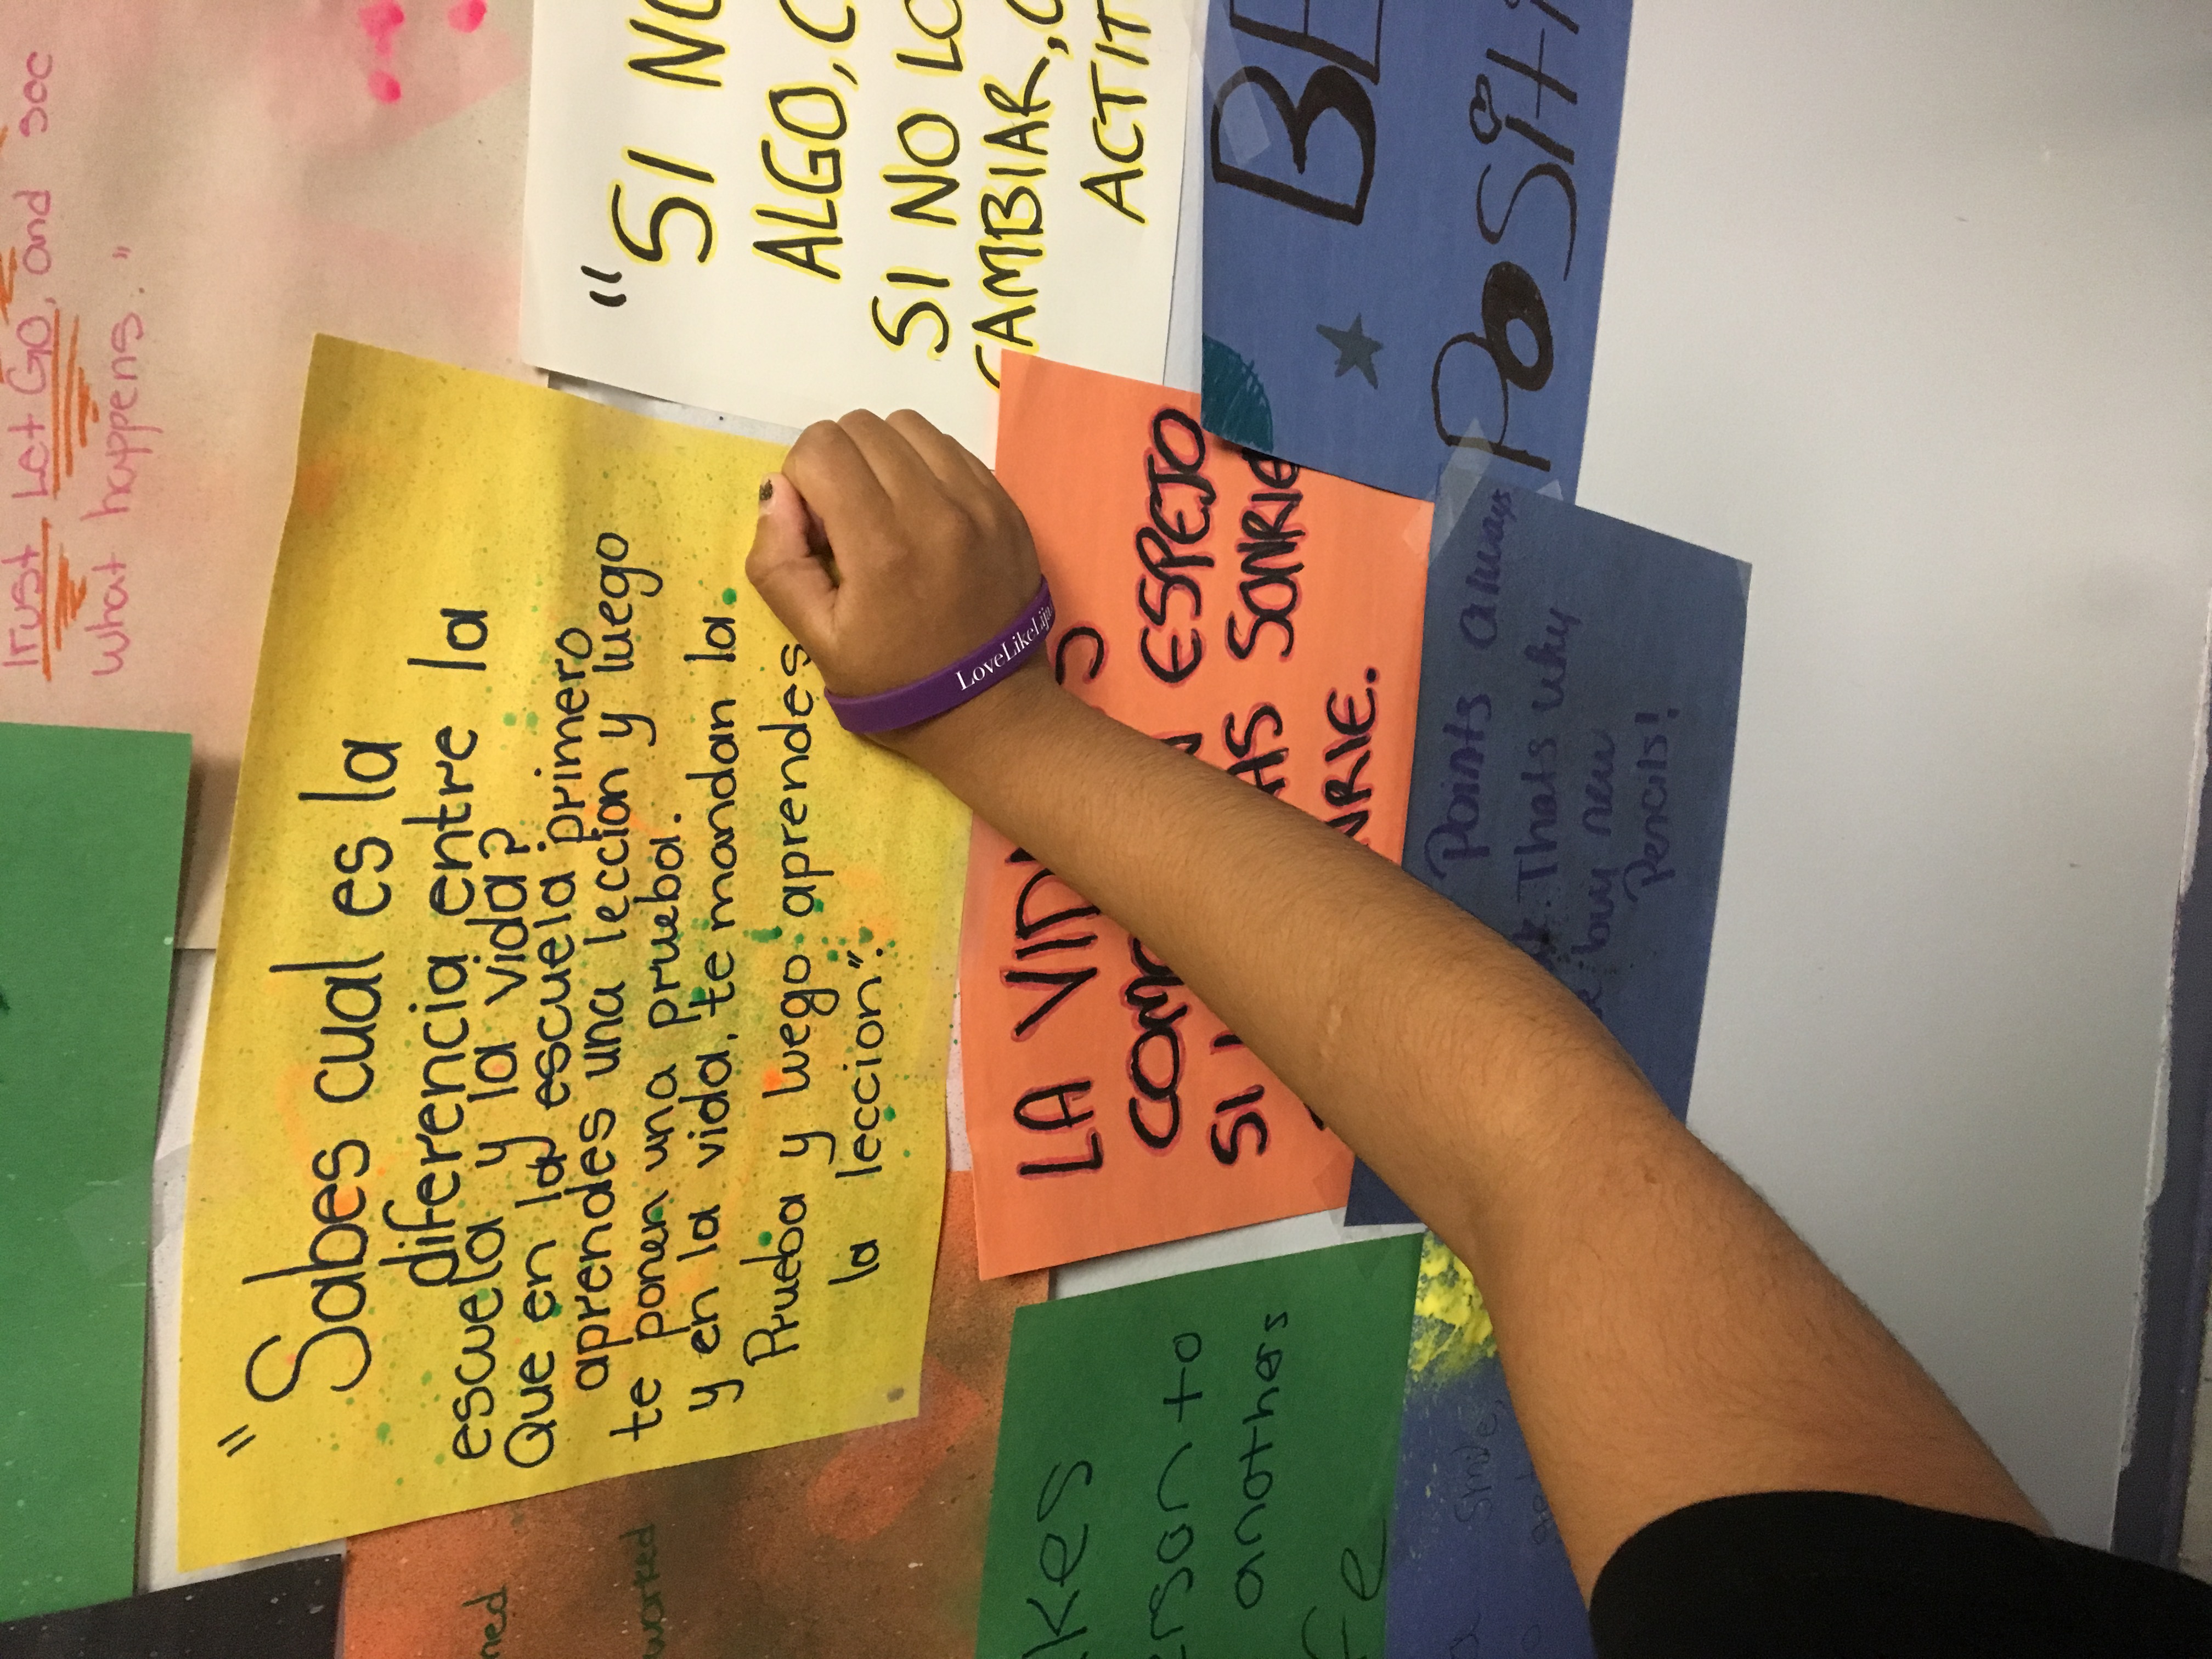 Trust Let Go, and see
what happens."
"SI NO
ALGO,
SI NO LO
CAMBIAR,
ACTIT
BE
POSITI
"Sabes cual es la
diferencia entre la
escuela y la vida?
Que en la escuela primero
aprendes una leccion y luego
te ponen una prueba.
y en la vida, te mandan la
Prueba y luego aprendes
la leccion".
LoveLikeLiju
LA VID
COMO ESPEJO
SI SONRIE
NRIE.
Points always
Thats why
buy new
Pencils!
kes
erson to
anothers
fe
Smile,
ned
worked